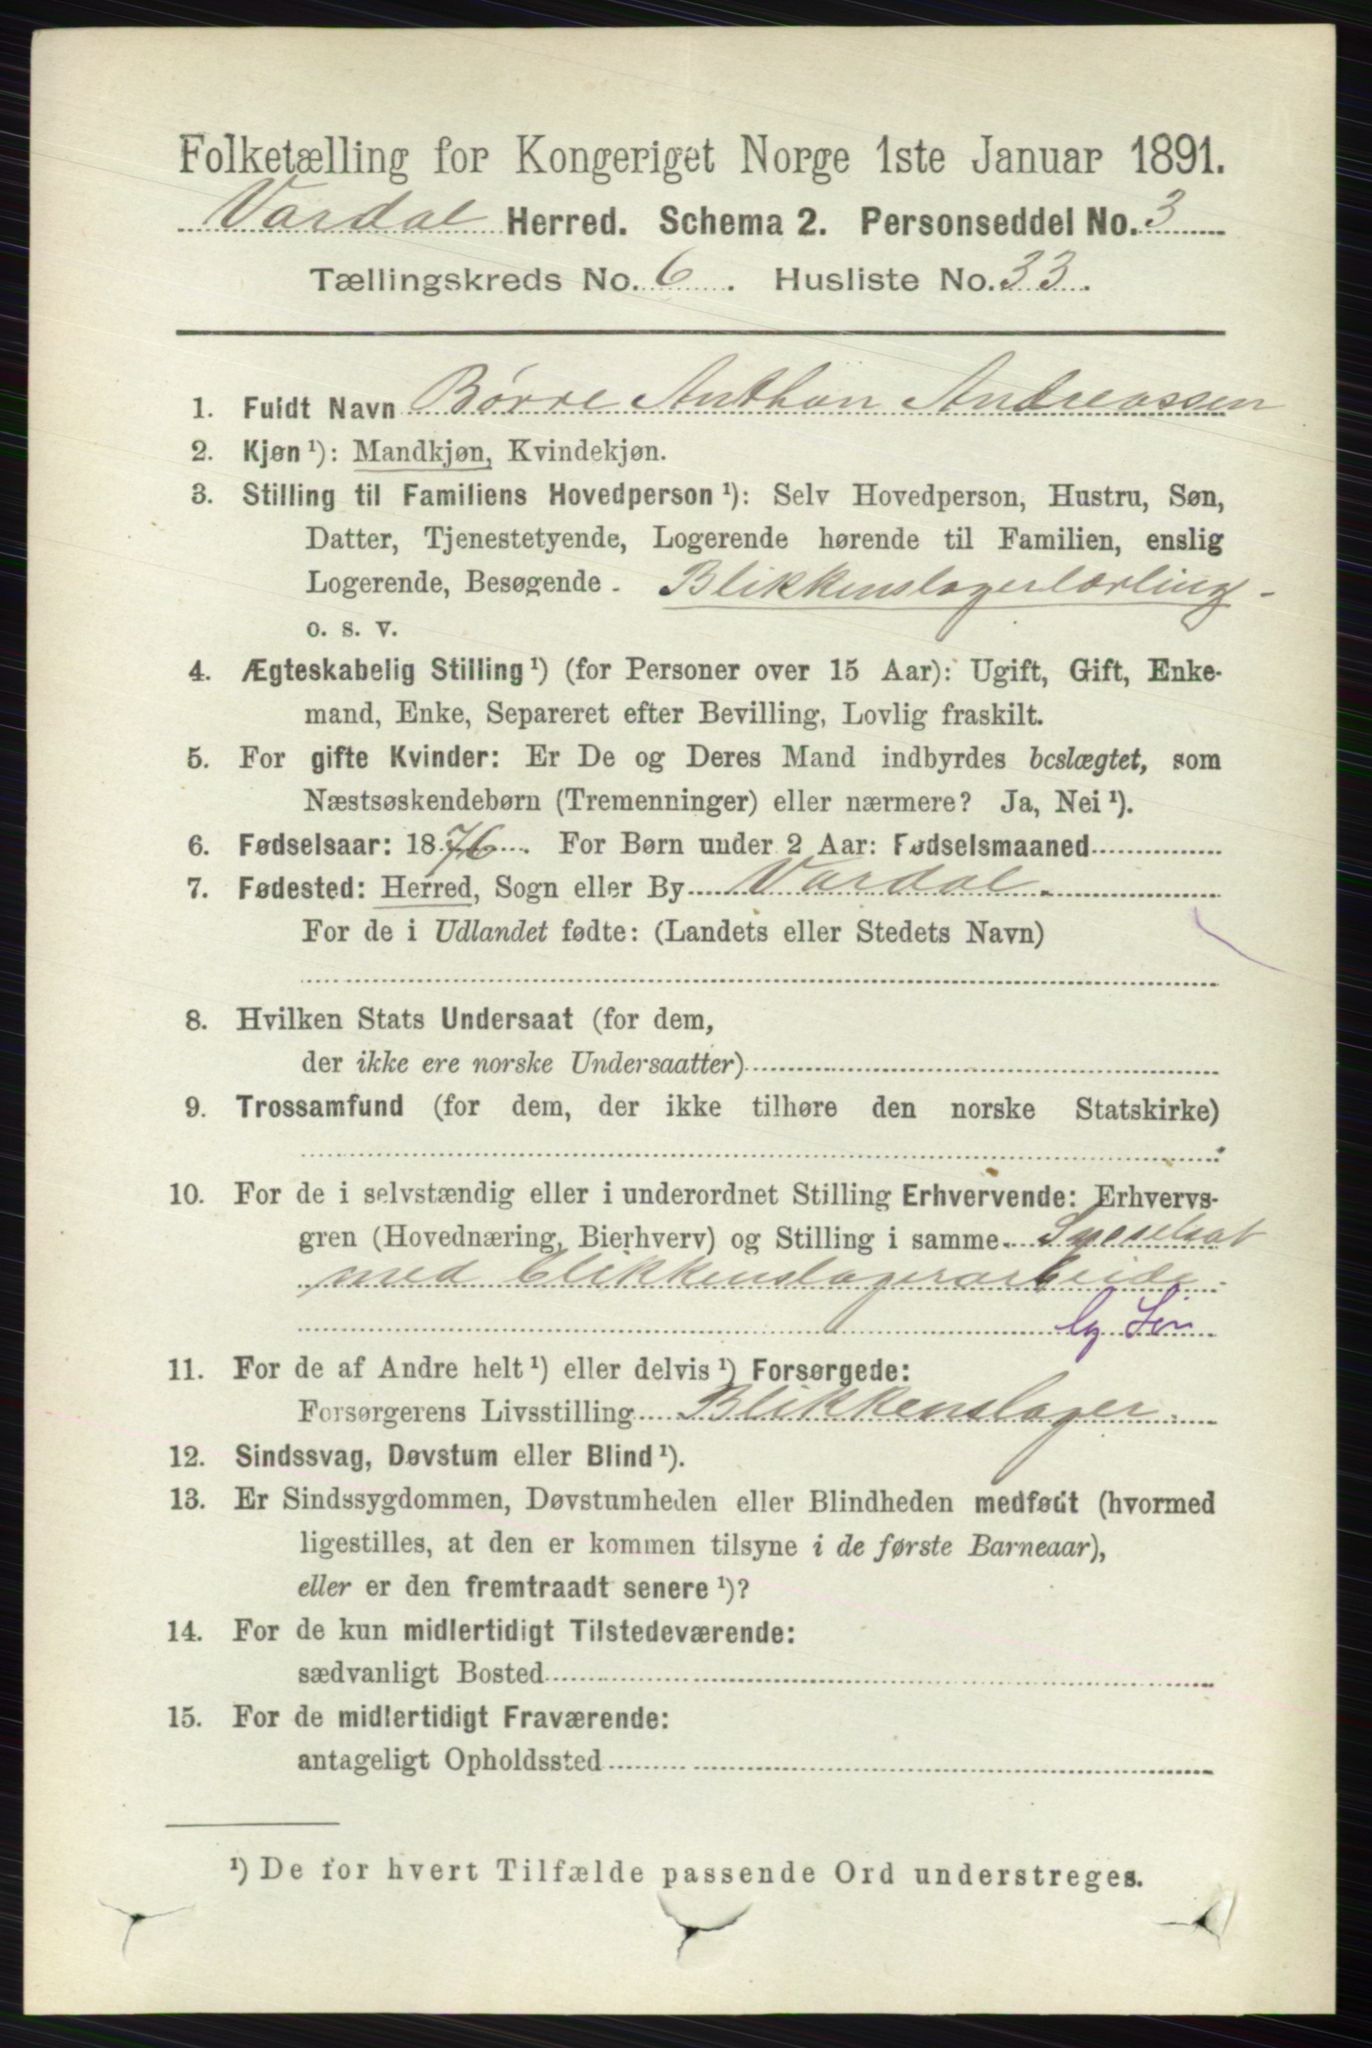 Folketælling for Kongeriget Norge 1ste Januar 1891.
Vardal Herred. Schema 2. Personseddel No. 3
Tællingskreds No. 6. Husliste No. 33.
1. Fuldt Navn Børre Anthon Andreassen
2. Kjøn ¹): Mandkjøn, Kvindekjøn.
3. Stilling til Familiens Hovedperson ¹): Selv Hovedperson, Hustru, Søn,
Datter, Tjenestetyende, Logerende hørende til Familien, enslig
Logerende, Besøgende - Blikkenslagerlærling -
o. s. v.
4. Ægteskabelig Stilling ¹) (for Personer over 15 Aar): Ugift, Gift, Enke-
mand, Enke, Separeret efter Bevilling, Lovlig fraskilt.
5. For gifte Kvinder: Er De og Deres Mand indbyrdes beslægtet, som
Næstsøskendebørn (Tremenninger) eller nærmere? Ja, Nei ¹).
6. Fødselsaar: 1876. For Børn under 2 Aar: Fødselsmaaned
7. Fødested: Herred, Sogn eller By Vardal.
For de i Udlandet fødte: (Landets eller Stedets Navn)
8. Hvilken Stats Undersaat (for dem,
der ikke ere norske Undersaatter)
9. Trossamfund (for dem, der ikke tilhøre den norske Statskirke)
10. For de i selvstændig eller i underordnet Stilling Erhvervende: Erhvervs-
gren (Hovednæring, Bierhverv) og Stilling i samme. Sysselsat
med blikkenslagerarbeide.
11. For de af Andre helt ¹) eller delvis ¹) Forsørgede:
Forsørgerens Livsstilling Blikkenslager.
12. Sindssvag, Døvstum eller Blind ¹).
13. Er Sindssygdommen, Døvstumheden eller Blindheden medfødt (hvormed
ligestilles, at den er kommen tilsyne i de første Barneaar),
eller er den fremtraadt senere ¹)?
14. For de kun midlertidigt Tilstedeværende:
sædvanligt Bosted
15. For de midlertidigt Fraværende:
antageligt Opholdssted
¹) De for hvert Tilfælde passende Ord understreges.